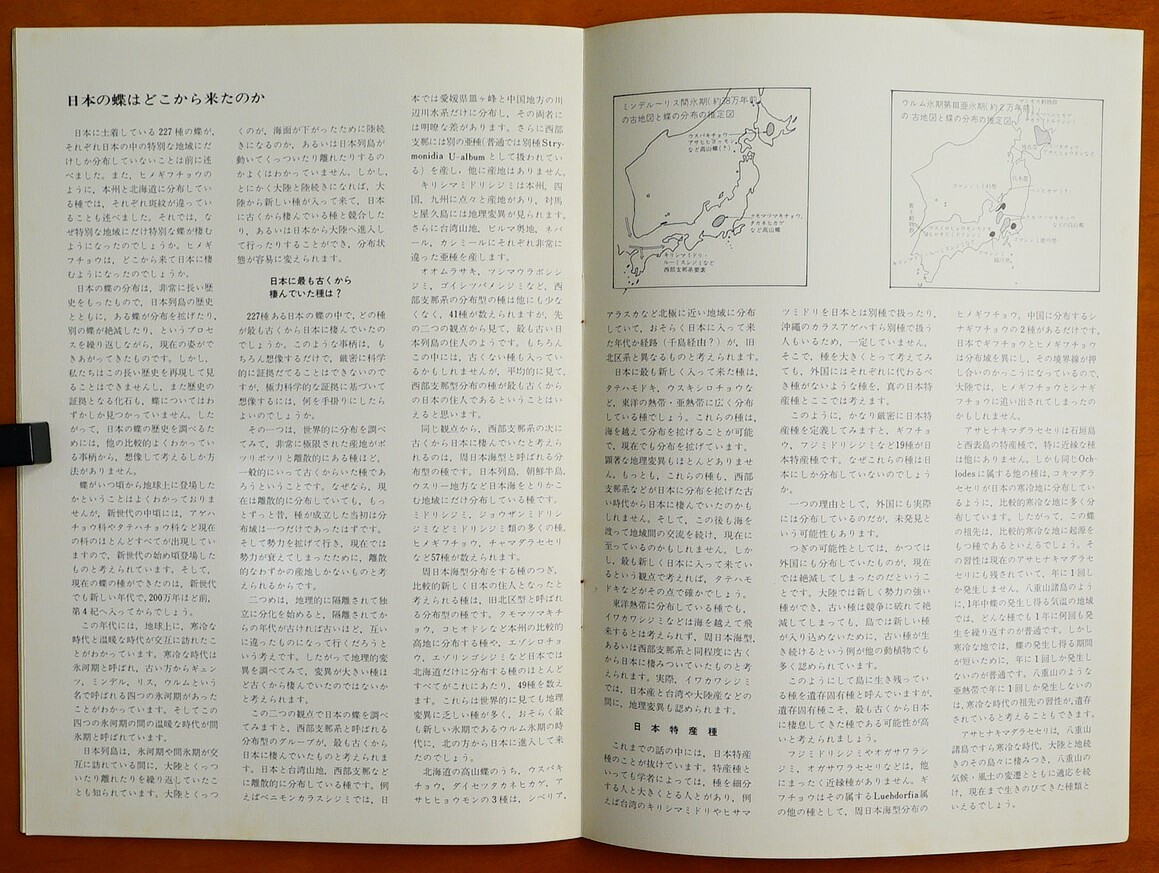 日本の蝶はどこから来たのか
日本に土着している227種の蝶が,
それぞれ日本の中の特別な地域にだ
けしか分布していないことは前に述
べました。また, ヒメギフチョウの
ように, 本州と北海道に分布してい
る種では, それぞれ斑紋が違ってい
ることも述べました。それでは, な
ぜ特別な地域にだけ特別な蝶が棲む
ようになったのでしょうか。ヒメギ
フチョウは, どこから来て日本に棲
むようになったのでしょうか。
日本の蝶の分布は, 非常に長い歴
史をもったもので, 日本列島の歴史
とともに, ある蝶が分布を拡げたり,
別の蝶が絶滅したり, というプロセ
スを繰り返しながら, 現在の姿がで
きあがってきたものです。しかし,
私たちはこの長い歴史を再現して見
ることはできませんし, また歴史の
証拠となる化石も, 蝶についてはわ
ずかしか見つかっていません。した
がって, 日本の蝶の歴史を調べるた
めには, 他の比較的よくわかってい
る事柄から, 想像して考えるしか方
法がありません。
蝶がいつ頃から地球上に登場した
かということはよくわかっておりま
せんが, 新世代の中頃には, アゲハ
チョウ科やタテハチョウ科など現在
の科のほとんどすべてが出現してい
ますので, 新世代の始め頃登場した
ものと考えられています。そして,
現在の蝶の種ができたのは, 新世代
でも新しい年代で, 200万年ほど前,
第4紀へ入ってからでしょう。
この年代には, 地球上に, 寒冷な
時代と温暖な時代が交互に訪れたこ
とがわかっています。寒冷な時代は
氷河期と呼ばれ, 古い方からギュン
ツ, ミンデル, リス, ウルムという
名で呼ばれる四つの氷河期があった
ことがわかっています。そしてこの
四つの氷河期の間の温暖な時代が間
氷期と呼ばれています。
日本列島は, 氷河期や間氷期が交
互に訪れている間に, 大陸とくっつ
いたり離れたりを繰り返していたこ
とも知られています。大陸とくっつ
くのが, 海面が下がったために陸続
きになるのか, あるいは日本列島が
動いてくっついたり離れたりするの
かよくはわかっていません。しかし,
とにかく大陸と陸続きになれば, 大
陸から新しい種が入って来て, 日本
に古くから棲んでいる種と競合した
り, あるいは日本から大陸へ進入し
て行ったりすることができ, 分布状
態が容易に変えられます。
日本に最も古くから
棲んでいた種は?
227種ある日本の蝶の中で, どの種
が最も古くから日本に棲んでいたの
でしょうか。このような事柄は, も
ちろん想像するだけで, 厳密に科学
的に証拠だてることはできないので
すが, 極力科学的な証拠に基づいて
想像するには, 何を手掛りにしたら
よいのでしょうか。
その一つは, 世界的に分布を調べ
てみて, 非常に極限された産地がポ
ツリポツリと離散的にある種ほど,
一般的にいって古くからいた種であ
ろうということです。なぜなら, 現
在は離散的に分布していても, もっ
とずっと昔, 種が成立した当初は分
布域は一つだけであったはずです。
そして勢力を拡げて行き, 現在では
勢力が衰えてしまったために, 離散
的なわずかの産地しかないものと考
えられるからです。
二つめは, 地理的に隔離されて独
立に分化を始めると, 隔離されてか
らの年代が古ければ古いほど, 互い
に違ったものになって行くだろうと
いう考えです。したがって地理的変
異を調べてみて, 変異が大きい種ほ
ど古くから棲んでいたのではないか
と考えられます。
この二つの観点で日本の蝶を調べ
てみますと, 西部支那系と呼ばれる
分布型のグループが, 最も古くから
日本に棲んでいたものと考えられま
す。日本と台湾山地, 西部支那など
に離散的に分布している種です。例
えばベニモンカラスシジミでは, 日
本では愛媛県皿ヶ峰と中国地方の川
辺川水系だけに分布し, その両者に
は明瞭な差があります。さらに西部
支那には別の亜種(普通では別種Stry-
monidia U-albumとして扱われてい
る) を産し, 他に産地はありません。
キリシマミドリシジミは本州, 四
国, 九州に点々と産地があり, 対馬
と屋久島には地理変異が見られます。
さらに台湾山地, ビルマ奥地, ネパ
ール, カシミールにそれぞれ非常に
違った亜種を産します。
オオムラサキ, ツシマウラボシシ
ジミ, ゴイシツバメシジミなど, 西
部支那系の分布型の種は他にも少な
くなく, 41種が数えられますが, 先
の二つの観点から見て, 最も古い日
本列島の住人のようです。もちろん
この中には, 古くない種も入ってい
るかもしれませんが, 平均的に見て,
西部支那型分布の種が最も古くから
の日本の住人であるということはい
えると思います。
同じ観点から, 西部支那系の次に
古くから日本に棲んでいたと考えら
れるのは, 周日本海型と呼ばれる分
布型の種です。日本列島, 朝鮮半島,
ウスリー地方など日本海をとりかこ
む地域にだけ分布している種です。
ミドリシジミ, ジョウザンミドリシ
ジミなどミドリシジミ類の多くの種,
ヒメギフチョウ, チャマダラセセリ
など57種が数えられます。
周日本海型分布をする種のつぎ,
比較的新しく日本の住人となったと
考えられる種は, 旧北区型と呼ばれ
る分布型の種です。クモマツマキチ
ョウ, コヒオドシなど本州の比較的
高地に分布する種や, エゾシロチョ
ウ, エゾリンゴシジミなど日本では
北海道だけに分布する種のほとんど
すべてがこれにあたり, 49種を数え
ます。これらは世界的に見ても地理
変異に乏しい種が多く, おそらく最
も新しい氷期であるウルム氷期の時
代に, 北の方から日本に進入して来
たのでしょう。
北海道の高山蝶のうち, ウスバキ
チョウ, ダイセツタカネヒカゲ, ア
サヒヒョウモンの3種は, シベリア,
ミンデル−リス間氷期(約38万年前)
の古地図と蝶の分布の推定図
ウスバキチョウ
アサヒヒョウモン
など高山蝶(?)
クモマツマキチョウ,
タカネヒカゲ
など高山蝶
キリシマミドリ・
ルーミスシジミなど
西部支那系要素
ウルム氷期第Ⅲ亜氷期(約2万年前)
の古地図と蝶の分布の推定図
日本型
アラスカなど北極に近い地域に分布
していて, おそらく日本に入って来
た年代か経路 (千島経由?) が, 旧
北区系と異なるものと考えられます。
日本に最も新しく入って来た種は,
タテハモドキ, ウスキシロチョウな
ど, 東洋の熱帯・亜熱帯に広く分布
している種でしょう。これらの種は,
海を越えて分布を拡げることが可能
で, 現在でも分布を拡げています。
顕著な地理変異もほとんどありませ
ん。もっとも, これらの種も, 西部
支那系などが日本に分布を拡げた古
い時代から日本に棲んでいたのかも
しれません。そして, この後も海を
渡って地域間の交流を続け, 現在に
至っているのかもしれません。しか
し, 最も新しく日本に入って来てい
るという観点で考えれば, タテハモ
ドキなどがその点で確かでしょう。
東洋熱帯に分布している種でも,
イワカワシジミなどは海を越えて飛
来するとは考えられず, 周日本海型,
あるいは西部支那系と同程度に古く
から日本に棲みついていたものと考
えられます。実際, イワカワシジミ
では, 日本産と台湾や大陸産などの
間に, 地理変異も認められます。
日本特産種
これまでの話の中には, 日本特産
種のことが抜けています。特産種と
いっても学者によっては, 種を細分
する人と大きくとる人とがあり, 例
えば台湾のキリシマミドリやヒサマ
ツミドリを日本とは別種で扱ったり,
沖縄のカラスアゲハすら別種で扱う
人もいるため, 一定していません。
そこで, 種を大きくとって考えてみ
ても, 外国にはそれぞれに代わるべ
き種がないような種を, 真の日本特
産種とここでは考えます。
このように, かなり厳密に日本特
産種を定義してみますと, ギフチョ
ウ, フジミドリシジミなど19種が日
本特産種です。なぜこれらの種は日
本にしか分布していないのでしょう
か。
一つの理由として, 外国にも実際
には分布しているのだが, 未発見と
いう可能性もあります。
つぎの可能性としては, かつては
外国にも分布していたものが, 現在
では絶滅してしまったのだというこ
とです。大陸では新しく勢力の強い
種ができ, 古い種は競争に破れて絶
滅してしまっても, 島では新しい種
が入り込めないために, 古い種が生
き続けるという例が他の動植物でも
多く認められています。
このようにして島に生き残ってい
る種を遺存固有種と呼んでいますが,
遺存固有種こそ, 最も古くから日本
に棲息してきた種である可能性が高
いと考えられましょう。
フジミドリシジミやオガサワラシ
ジミ, オガサワラセセリなどは, 他
にまったく近縁種がありません。ギ
フチョウはその属するLuehdorfia属
の他の種として, 周日本海型分布の
ヒメギフチョウ, 中国に分布するシ
ナギフチョウの2種があるだけです。
日本でギフチョウとヒメギフチョウ
は分布域を異にし, その境界線が押
し合いのかっこうになっているので,
大陸では, ヒメギフチョウとシナギ
フチョウに追い出されてしまったの
かもしれません。
アサヒナキマダラセセリは石垣島
と西表島の特産種で, 特に近縁な種
は他にありません。しかも同じOch-
lodesに属する他の種は, コキマダラ
セセリが日本の寒冷地に分布してい
るように, 比較的寒冷な地に多く分
布しています。したがって, この蝶
の祖先は, 比較的寒冷な地に起源を
もつ種であるといえるでしょう。そ
の習性は現在のアサヒナキマダラセ
セリにも残されていて, 年に1回し
か発生しません。八重山諸島のよう
に, 1年中蝶の発生し得る気温の地域
では, どんな種でも1年に何回も発
生を繰り返すのが普通です。しかし
寒冷な地では, 蝶の発生し得る期間
が短いために, 年に1回しか発生し
ないのが普通です。八重山のような
亜熱帯で年に1回しか発生しないの
は, 寒冷な時代の祖先の習性が, 遺存
されていると考えることもできます。
アサヒナキマダラセセリは, 八重山
諸島ですら寒冷な時代, 大陸と地続
きのその島々に棲みつき, 八重山の
気候・風土の変遷とともに適応を続
け, 現在まで生きのびてきた種類と
いえるでしょう。